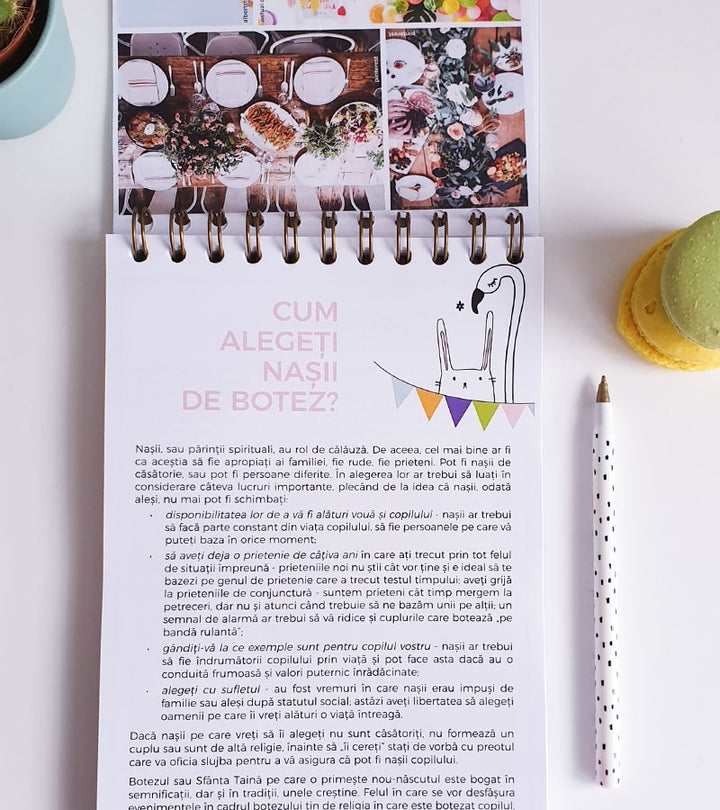 pinterest
pinterest
CUM
ALEGEȚI
NAȘII
DE BOTEZ?
Nașii, sau părinții spirituali, au rol de călăuză. De aceea, cel mai bine ar fi
ca aceștia să fie apropiați ai familiei, fie rude, fie prieteni. Pot fi nașii de
căsătorie, sau pot fi persoane diferite. În alegerea lor ar trebui să luați în
considerare câteva lucruri importante, plecând de la idea că nașii, odată
aleși, nu mai pot fi schimbați:
· disponibilitatea lor de a vă fi alături vouă și copilului - nașii ar trebui
să facă parte constant din viața copilului, să fie persoanele pe care vă
puteți baza în orice moment;
· să aveți deja o prietenie de câțiva ani în care ați trecut prin tot felul
de situații împreună - prieteniile noi nu știi cât vor ține și e ideal să te
bazezi pe genul de prietenie care a trecut testul timpului; aveți grijă
la prieteniile de conjunctură - suntem prieteni cât timp mergem la
petreceri, dar nu și atunci când trebuie să ne bazăm unii pe alții; un
semnal de alarmă ar trebui să vă ridice și cuplurile care botează „pe
bandă rulantă”;
· gândiți-vă la ce exemple sunt pentru copilul vostru - nașii ar trebui
să fie îndrumătorii copilului prin viață și pot face asta dacă au o
conduită frumoasă și valori puternic înrădăcinate;
· alegeți cu sufletul - au fost vremuri în care nașii erau impuși de
familie sau aleși după statutul social; astăzi aveți libertatea să alegeți
oamenii pe care îi vreți alături o viață întreagă.
Dacă nașii pe care vreți să îi alegeți nu sunt căsătoriți, nu formează un
cuplu sau sunt de altă religie, înainte să „îi cereți” stați de vorbă cu preotul
care va oficia slujba pentru a vă asigura că pot fi nașii copilului.
Botezul sau Sfânta Taină pe care o primește nou-născutul este bogat în
semnificații, dar și în tradiții, unele creștine. Felul în care se vor desfășura
evenimentele în cadrul botezului țin de religia în care este botezat copilul,